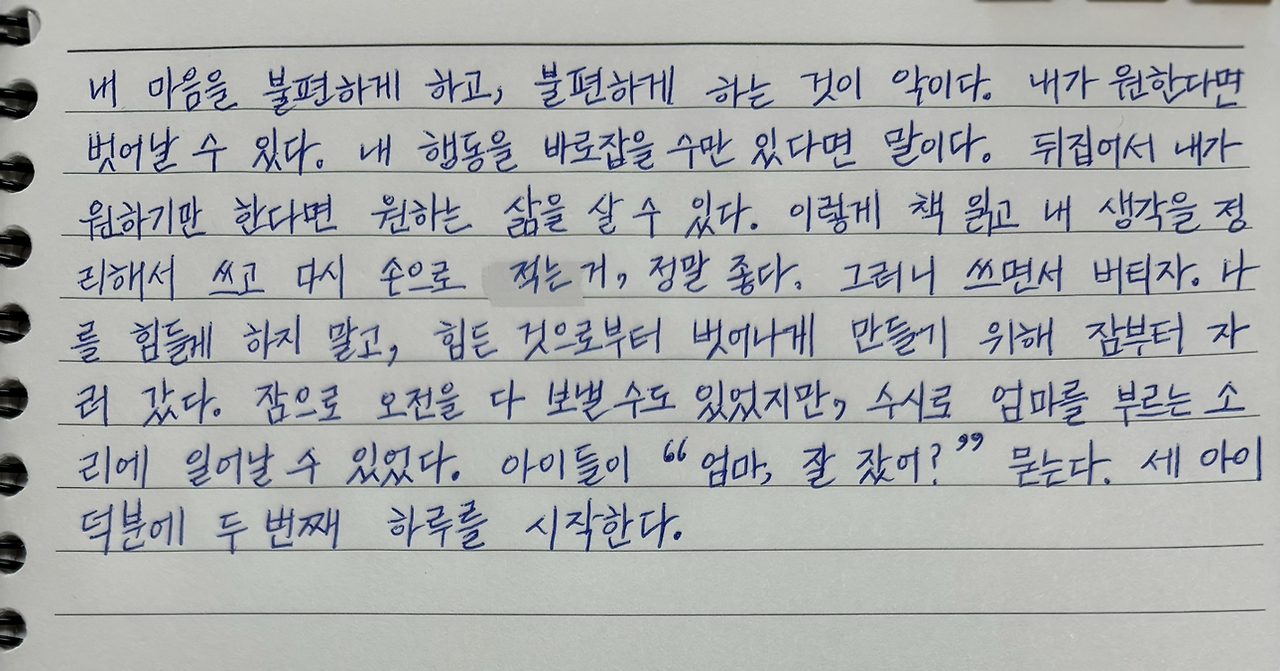 내 마음을 불편하게 하고, 불편하게 하는 것이 악이다. 내가 원한다면
벗어날 수 있다. 내 행동을 바로잡을 수만 있다면 말이다. 뒤집어서 내가
원하기만 한다면 원하는 삶을 살 수 있다. 이렇게 책 읽고 내 생각을 정
리해서 쓰고 다시 손으로 적는 거, 정말 좋다. 그러니 쓰면서 버티자. 나
를 힘들게 하지 말고, 힘든 것으로부터 벗어나게 만들기 위해 잠부터 자
러 갔다. 잠으로 오전을 다 보낼 수도 있었지만, 수시로 엄마를 부르는 소
리에 일어날 수 있었다. 아이들이 “엄마, 잘 잤어?” 묻는다. 세 아이
덕분에 두 번째 하루를 시작한다.